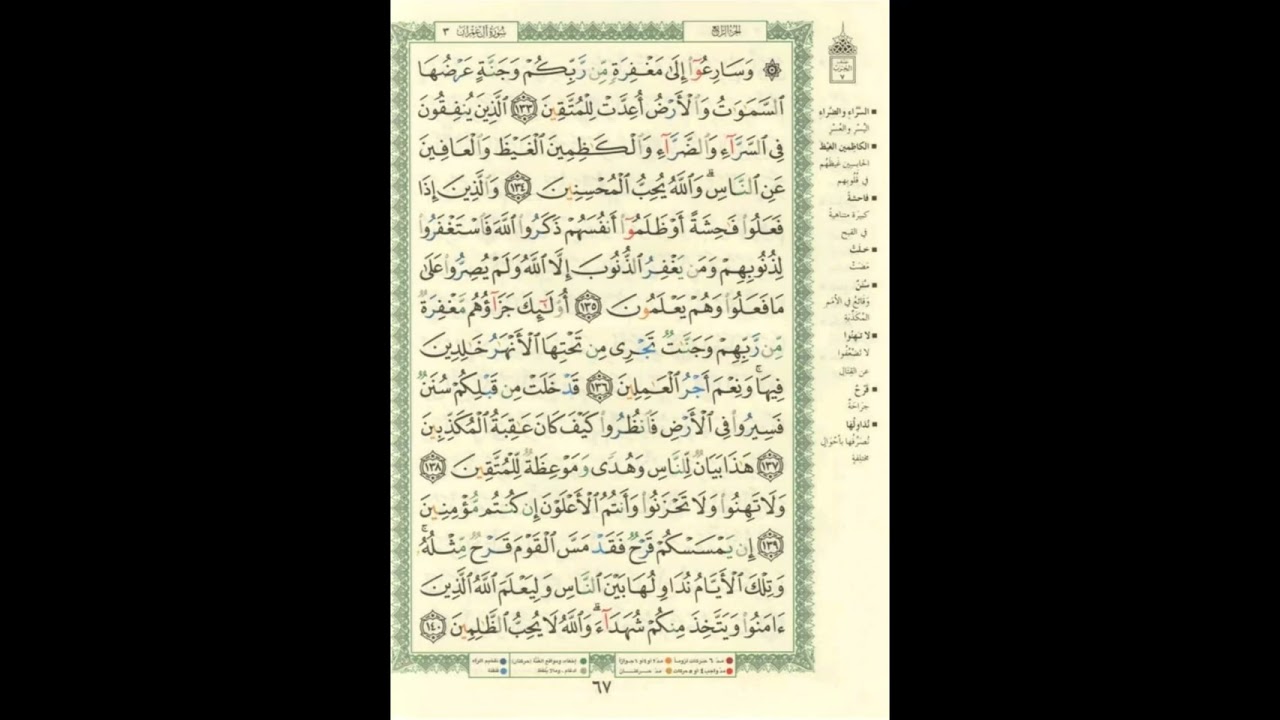 سُورَةُ آلِ عِمْرَان ٣
الجزء الرابع
۞ وَسَارِعُوٓا۟ إِلَىٰ مَغْفِرَةٍ مِّن رَّبِّكُمْ وَجَنَّةٍ عَرْضُهَا
ٱلسَّمَٰوَٰتُ وَٱلْأَرْضُ أُعِدَّتْ لِلْمُتَّقِينَ ١٣٣ ٱلَّذِينَ يُنفِقُونَ
فِى ٱلسَّرَّآءِ وَٱلضَّرَّآءِ وَٱلْكَٰظِمِينَ ٱلْغَيْظَ وَٱلْعَافِينَ
عَنِ ٱلنَّاسِ ۗ وَٱللَّهُ يُحِبُّ ٱلْمُحْسِنِينَ ١٣٤ وَٱلَّذِينَ إِذَا
فَعَلُوا۟ فَٰحِشَةً أَوْ ظَلَمُوٓا۟ أَنفُسَهُمْ ذَكَرُوا۟ ٱللَّهَ فَٱسْتَغْفَرُوا۟
لِذُنُوبِهِمْ وَمَن يَغْفِرُ ٱلذُّنُوبَ إِلَّا ٱللَّهُ وَلَمْ يُصِرُّوا۟ عَلَىٰ
مَا فَعَلُوا۟ وَهُمْ يَعْلَمُونَ ١٣٥ أُو۟لَٰٓئِكَ جَزَآؤُهُم مَّغْفِرَةٌ
مِّن رَّبِّهِمْ وَجَنَّٰتٌ تَجْرِى مِن تَحْتِهَا ٱلْأَنْهَٰرُ خَٰلِدِينَ
فِيهَا ۚ وَنِعْمَ أَجْرُ ٱلْعَٰمِلِينَ ١٣٦ قَدْ خَلَتْ مِن قَبْلِكُمْ سُنَنٌ
فَسِيرُوا۟ فِى ٱلْأَرْضِ فَٱنظُرُوا۟ كَيْفَ كَانَ عَٰقِبَةُ ٱلْمُكَذِّبِينَ
١٣٧ هَٰذَا بَيَانٌ لِّلنَّاسِ وَهُدًى وَمَوْعِظَةٌ لِّلْمُتَّقِينَ ١٣٨
وَلَا تَهِنُوا۟ وَلَا تَحْزَنُوا۟ وَأَنتُمُ ٱلْأَعْلَوْنَ إِن كُنتُم مُّؤْمِنِينَ
١٣٩ إِن يَمْسَسْكُمْ قَرْحٌ فَقَدْ مَسَّ ٱلْقَوْمَ قَرْحٌ مِّثْلُهُۥ ۚ
وَتِلْكَ ٱلْأَيَّامُ نُدَاوِلُهَا بَيْنَ ٱلنَّاسِ وَلِيَعْلَمَ ٱللَّهُ ٱلَّذِينَ
ءَامَنُوا۟ وَيَتَّخِذَ مِنكُمْ شُهَدَآءَ ۗ وَٱللَّهُ لَا يُحِبُّ ٱلظَّٰلِمِينَ ١٤٠
السَّرَّاءِ والضَّرَّاءِ
اليُسْرِ والعُسْرِ
الكاظمين الغيظ
الحابسين غيظَهُم
في قُلُوبِهم
فاحشةً
كبيرة متناهية
في القبح
خلتْ
مَضَتْ
سُنَنٌ
وَقَائِعُ في الأُمَمِ
المُكَذِّبَةِ
لا تهنُوا
لا تَضْعُفُوا
عن القِتَالِ
قَرْحٌ
جِرَاحَةٌ
نُدَاوِلُهَا
نُصَرِّفُها بأحْوَالٍ
مختلِفةٍ
مدّ ٦ حركات لزوماً
مدّ ٢ أو ٤ أو ٦ جوازاً
إخفاء، ومواقع الغُنَّة (حركتان)
تفخيم الراء
مدّ واجب ٤ أو ٥ حركات
مدّ حركتان
إدغام، وما لا يُلفظ
قلقلة
٦٧